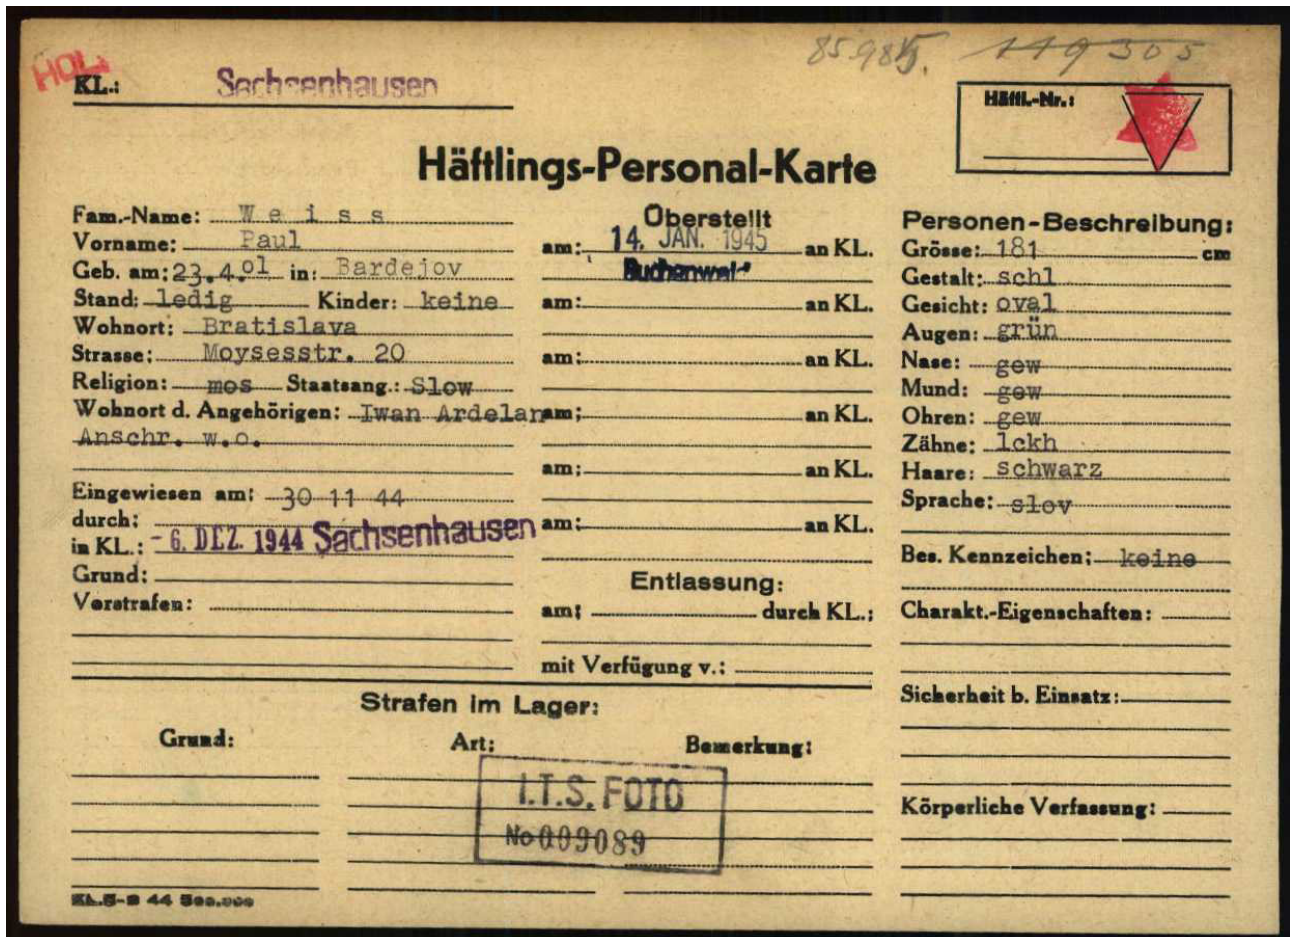 HOL.
85985. 119305
KL.: Sachsenhausen
Häftl.-Nr.:
Häftlings-Personal-Karte
Fam.-Name: Weiss
Vorname: Paul
Geb. am: 23.4.01 in: Bardejov
Stand: ledig Kinder: keine
Wohnort: Bratislava
Strasse: Moysesstr. 20
Religion: mos Staatsang.: Slow
Wohnort d. Angehörigen: Iwan Ardelan
Anschr. w.o.
Eingewiesen am: 30 11 44
durch:
in KL.: - 6. DEZ. 1944 Sachsenhausen
Grund:
Vorstrafen:
Überstellt
am: 14. JAN. 1945 an KL.
Buchenwald
am: an KL.
am: an KL.
am: an KL.
am: an KL.
am: an KL.
Entlassung:
am: durch KL.:
mit Verfügung v.:
Personen-Beschreibung:
Grösse: 181 cm
Gestalt: schl
Gesicht: oval
Augen: grün
Nase: gew
Mund: gew
Ohren: gew
Zähne: lckh
Haare: schwarz
Sprache: slov
Bes. Kennzeichen: keine
Charakt.-Eigenschaften:
Sicherheit b. Einsatz:
Körperliche Verfassung:
Strafen im Lager:
Grund: Art: Bemerkung:
I.T.S. FOTO
No 009089